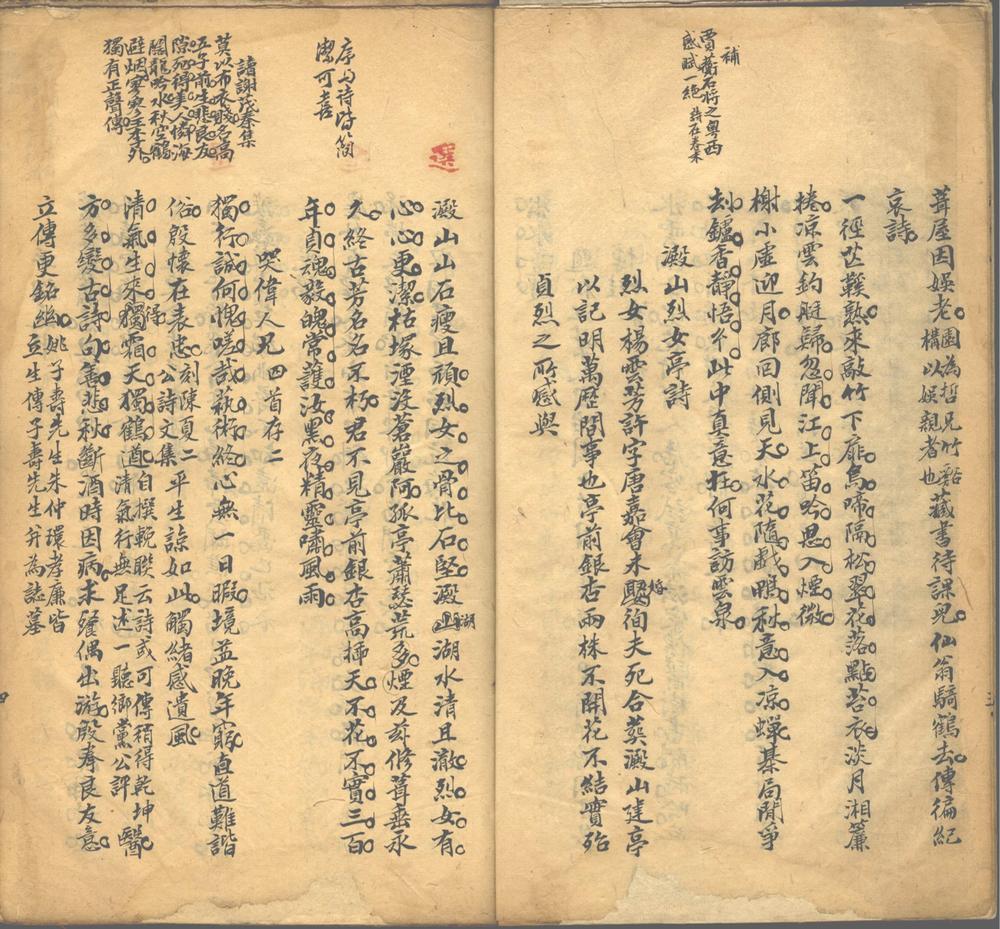 補
賈蘅石將之粵西
感賦一絕 詩在卷末
葺屋因娛老園為哲兄竹谿構以娛親者也藏書待課兒仙翁騎鶴去傳徧紀
哀詩
一徑芒鞵熟來敲竹下扉鳥啼隔松翠花落點苔衣淡月湘簾
捲凉雲釣艇歸忽聞江上笛吟思入煙微
榭小虛迎月廊回側見天水花隨戲鴨秋意入凉蟬棊局閒爭
刧鑪香靜悟个此中真意在何事訪雲泉
澱山烈女亭詩
烈女楊雲芳許字唐嘉會未婚徇夫死合葬澱山建亭
以記明萬歷間事也亭前銀杏兩株不開花不結實殆
貞烈之所感與
選
序与詩皆簡
潔可喜
澱山山石瘦且頑烈女之骨比石堅澱湖湖水清且澈烈女有
心心更潔枯塚湮没蒼巖阿孤亭蕭瑟荒多煙及茲修葺垂永
久終古芳名名不朽君不見亭前銀杏高揷天不花不實三百
年貞魂毅魄常護汝黑夜精靈嘯風雨
讀謝茂秦集
莫以布衣賤名高
五子前生悲良友
隙死得美人憐海
闊龍吟水秋空鶴
避烟寥寥季本外
獨有正聲傳
哭偉人兄四首存二
獨行誠何愧嗟哉執術終心無一日暇境益晚年窮直道難諧
俗殷懷在表忠刻陳夏二公詩文集平生諒如此觸緒感遺風
清氣生來獨霜天獨鶴遒自撰輓聯云詩或可傳稍得乾坤清氣行無足述一聽鄉黨公評醫
方多變古詩句善悲秋斷酒時因病求餐偶出游殷拳良友意
立傳更銘幽姚子壽先生朱仲環孝廉皆立生傳子壽先生幷為誌墓